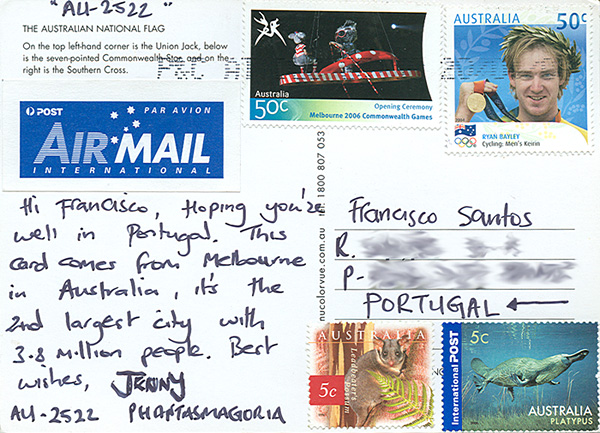 "AU-2522"
THE AUSTRALIAN NATIONAL FLAG
On the top left-hand corner is the Union Jack, below
is the seven-pointed Commonwealth Star and on the
right is the Southern Cross.
POST
PAR AVION
AIR MAIL
INTERNATIONAL
Australia
50c
Opening Ceremony
Melbourne 2006 Commonwealth Games
AUSTRALIA 50c
RYAN BAYLEY
Cycling: Men's Keirin
Hi Francisco, Hoping you're
well in Portugal. This
card comes from Melbourne
in Australia, it's the
2nd largest city with
3.8 Million people. Best
wishes, JENNY
AU-2522 PHANTASMAGORIA
nucolorvue.com.au tln: 1800 807 053
Francisco Santos
R.
P-
PORTUGAL ←
AUSTRALIA
Leadbeater's Possum
5c
International POST
5c
AUSTRALIA
PLATYPUS